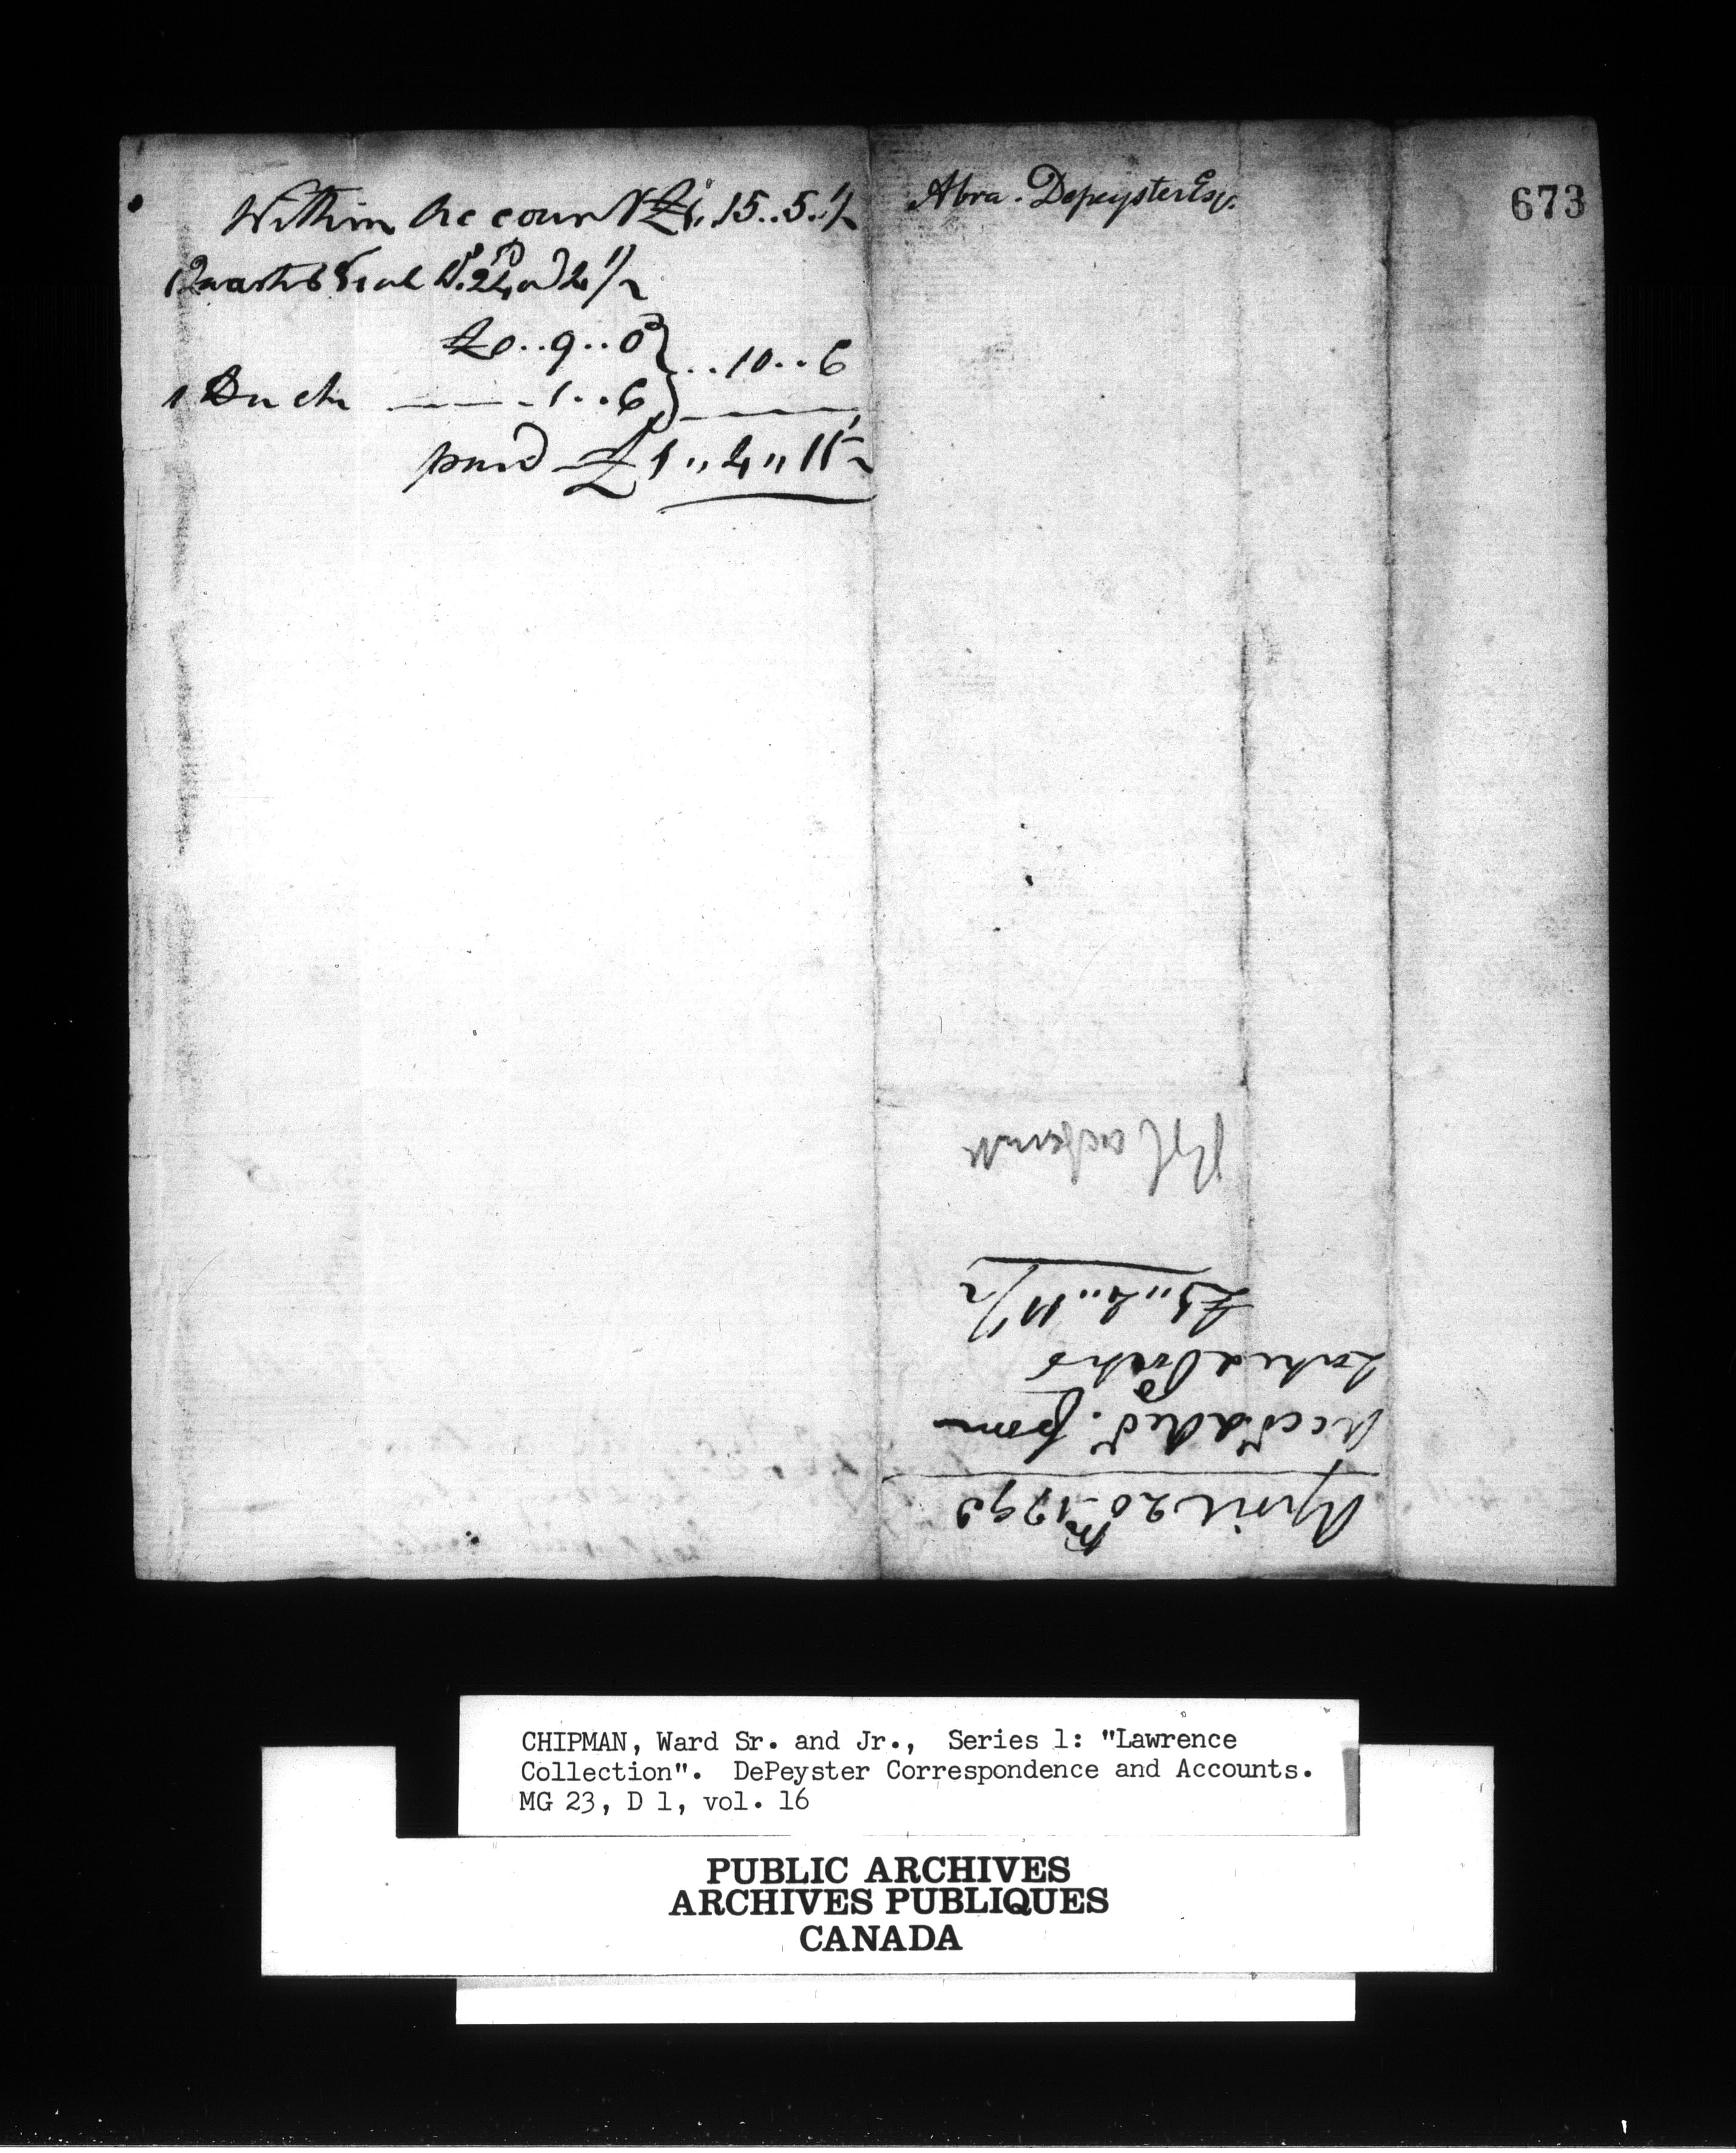 Within Account £1..15..5.1/2
1 Quarter Veal Wt. 24 @ 4 1/2
£0..9..0
1 Duck 1..6 } ..10..6
paid £1..4..11 1/2
Abra. Depeyster Esqr.
673
April 20th 1793
Acct. & Rect. from
£1..4..11 1/2
CHIPMAN, Ward Sr. and Jr., Series 1: "Lawrence
Collection". DePeyster Correspondence and Accounts.
MG 23, D 1, vol. 16
PUBLIC ARCHIVES
ARCHIVES PUBLIQUES
CANADA